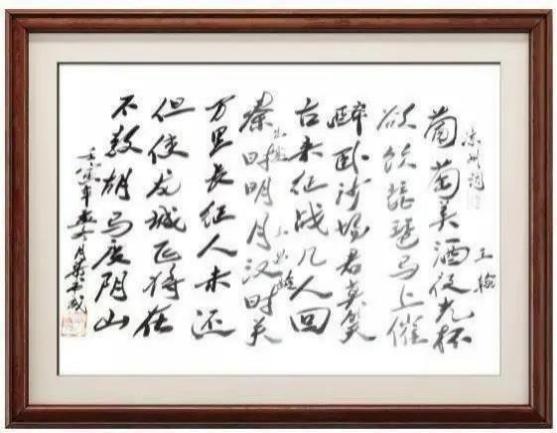 凉州词
王翰
葡萄美酒夜光杯
欲饮琵琶马上催
醉卧沙场君莫笑
古来征战几人回
出塞 王昌龄
秦时明月汉时关
万里长征人未还
但使龙城飞将在
不教胡马度阴山
壬寅年